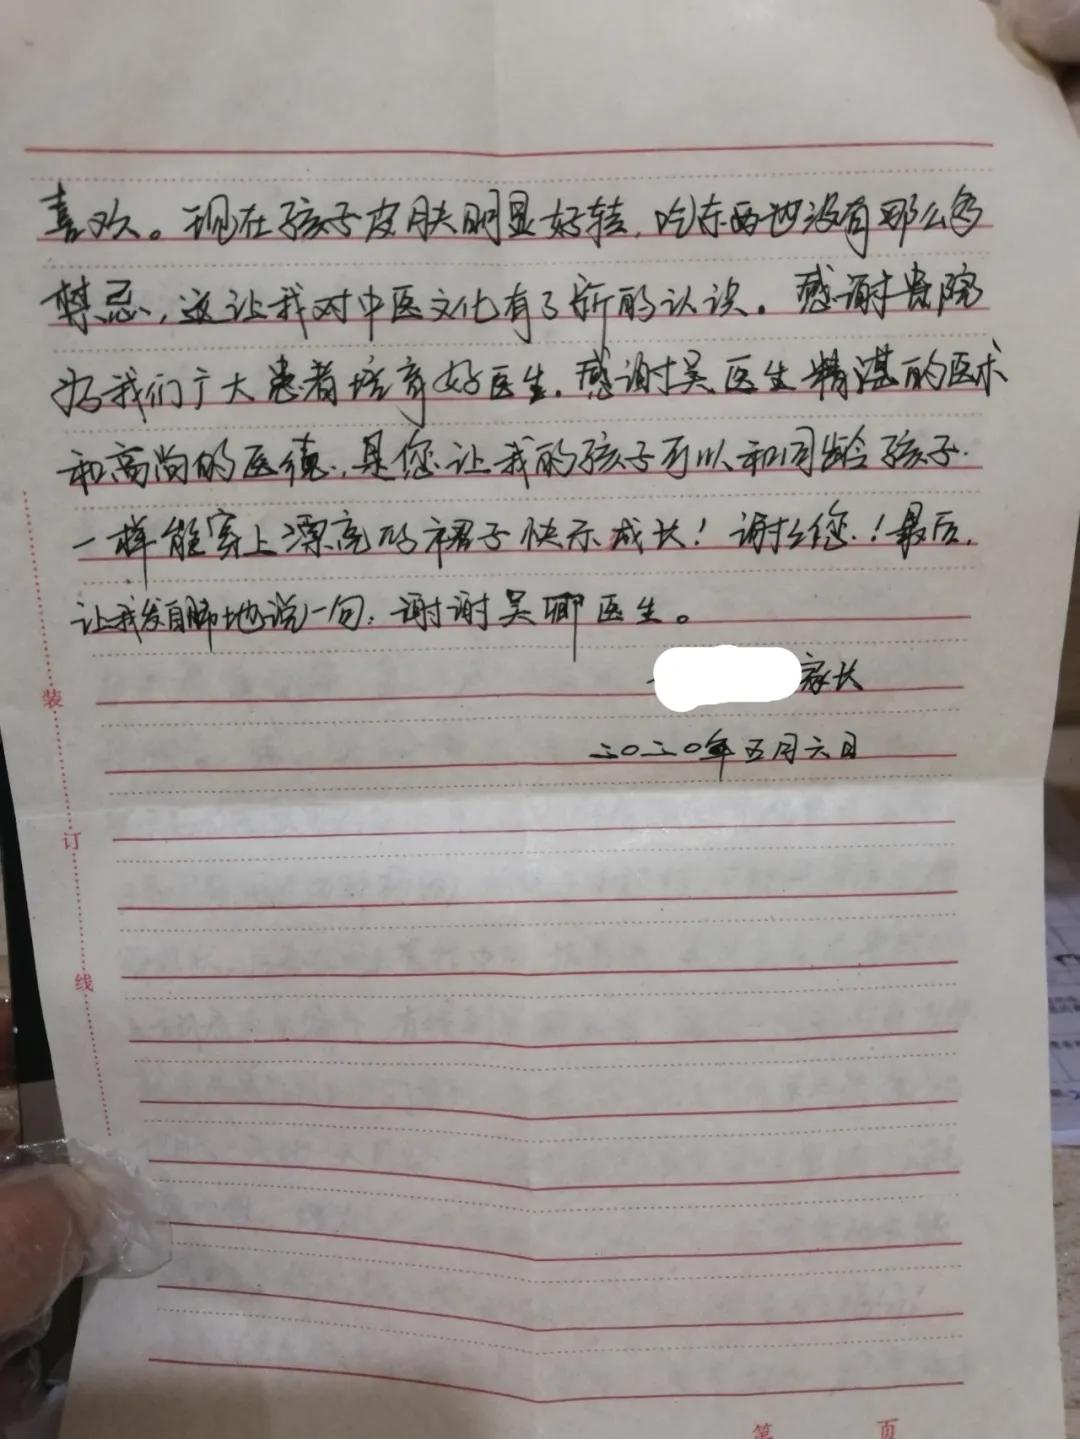 喜欢。现在孩子皮肤明显好转，吃东西也没有那么多
禁忌，这让我对中医文化有了新的认识。感谢贵院
为我们广大患者培育好医生。感谢吴医生精湛的医术
和高尚的医德，是您让我的孩子可以和同龄孩子
一样能穿上漂亮的裙子快乐成长！谢谢您！最后，
让我发自肺地说一句：谢谢吴卿医生。
家长
二〇二〇年五月六日
装
订
线
第 页